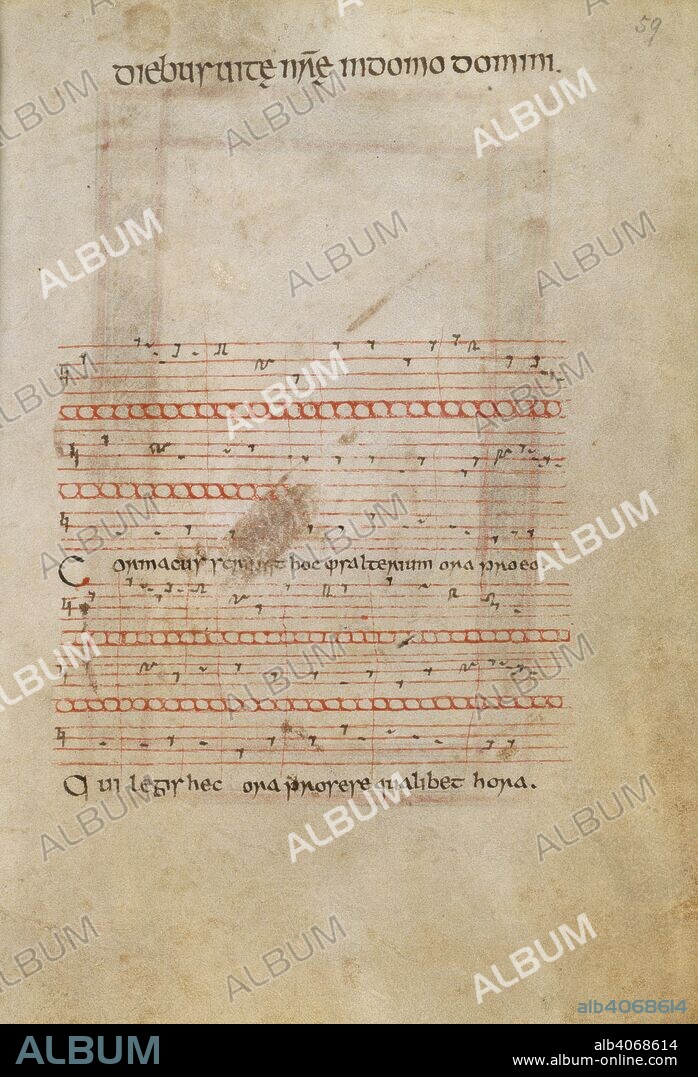 59
diebus uitę nr̄ę indomo domini.
Cormacus scripsit hoc psalterium ora pro eo
Qui legis hec ora prosese qualibet hora.
ALBUM
alb4068614
ALBUM
alb4068614
www.album-online.com